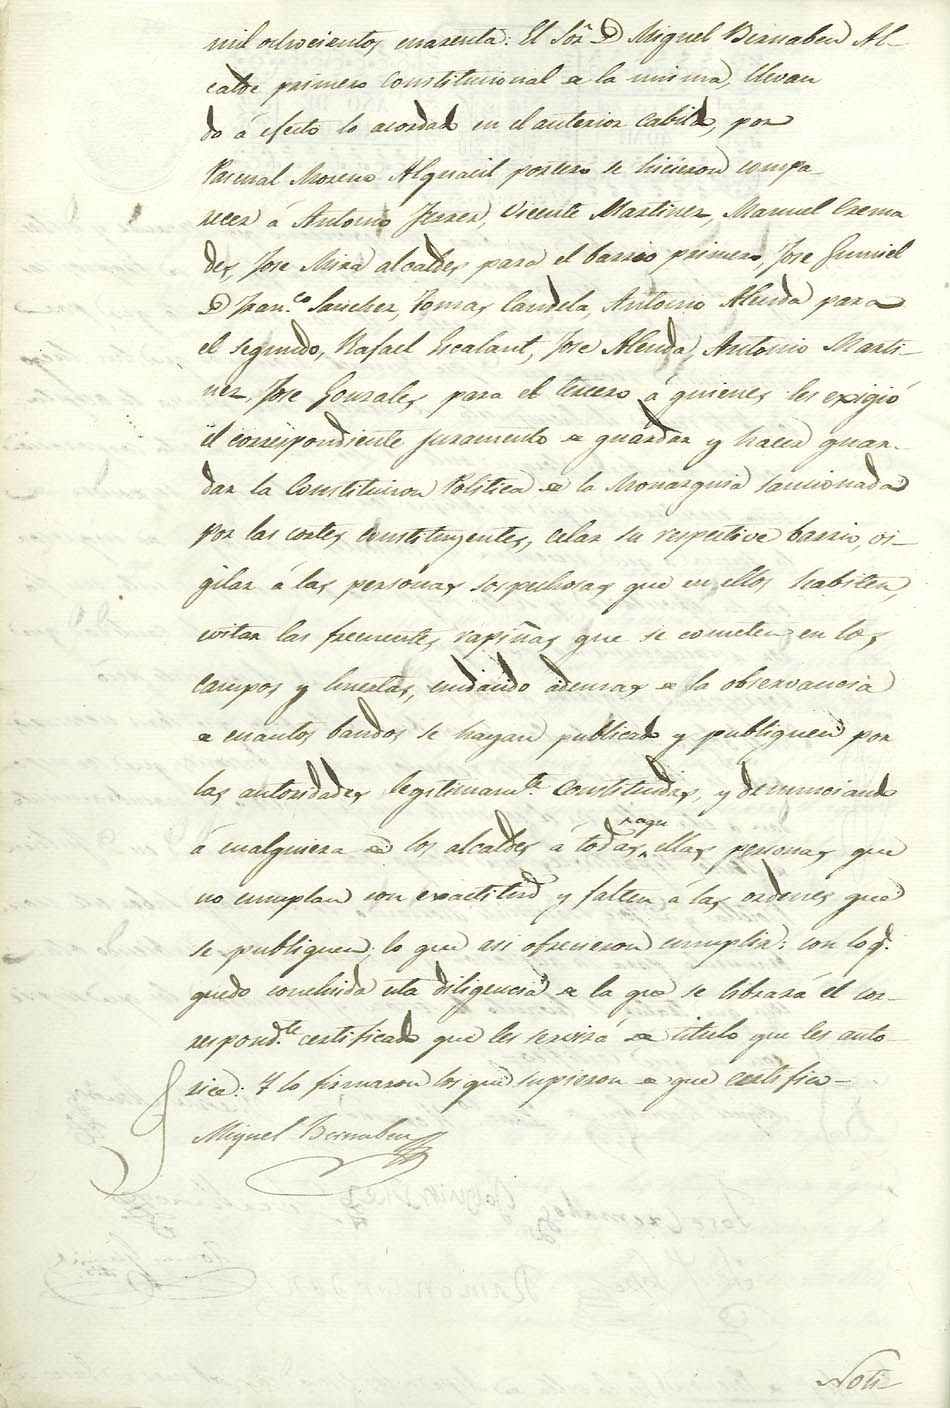 mil ochocientos cuarenta: El Sor. D. Miguel Bernabeu Al-
calde primero Constitucional de la misma, llevan
do á efecto lo acordado en el anterior Cabildo, por
Pascual Moreno Alguacil portero se hicieron compa-
recer á Antonio Ferrer, Vicente Martinez, Manuel Crema
des, Jose Mira alcaldes para el barrio primero, Jose Gumiel
D. Franco. Sanchez, Tomas Candela, Antonio Alenda para
el segundo, Rafael Escalant, Jose Alenda, Antonio Marti-
nez, Jose Gonzales para el tercero á quienes les exigió
el correspondiente juramento de guardar y hacer guar-
dar la Constitucion Politica de la Monarquia sancionada
por las cortes constituyentes, celar su respective barrio, vi-
gilar á las personas sospechosas que en ellos habiten,
evitar las frecuentes rapiñas que se cometen en los
campos y huertas, cuidando ademas de la observancia
de cuantos bandos se hayan publicado y publiquen por
las autoridades legitimamte. constituidas, y denunciando
á cualquiera de los alcaldes á todas aquellas personas que
no cumplan con exactitud y falten á las ordenes que
se publiquen; lo que asi ofrecieron cumplir: con lo q.
quedo concluida esta diligencia de la que se librará el cor-
respondte. certificado que les servirá de titulo que les auto-
rice: Y lo firmaron los que supieron de que certifico-
Miguel Bernabeu
Noti-